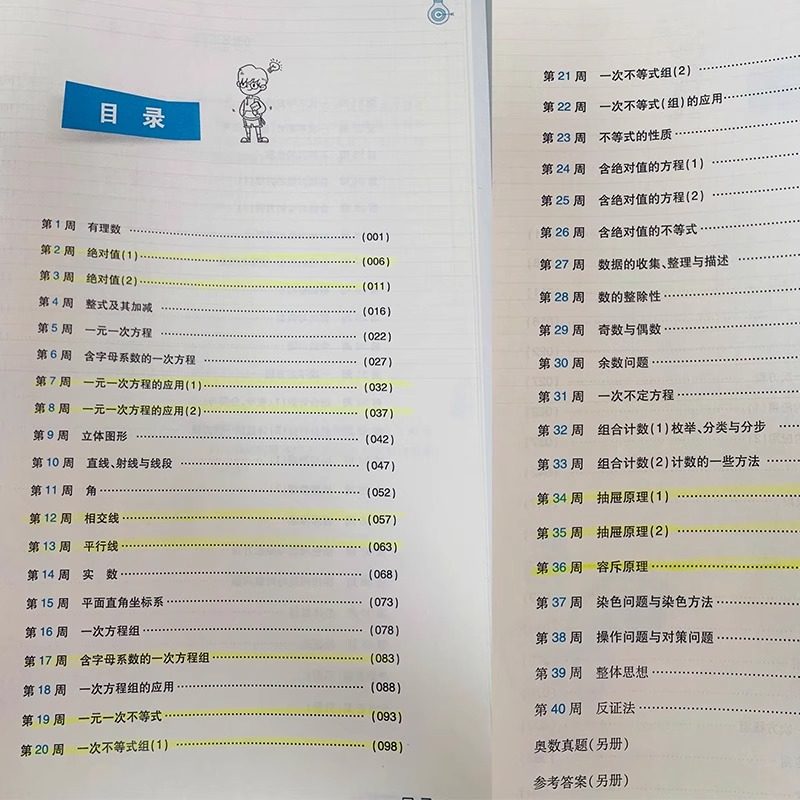 目 录
第1周 有理数 ………… (001)
第2周 绝对值(1) ………… (006)
第3周 绝对值(2) ………… (011)
第4周 整式及其加减 ………… (016)
第5周 一元一次方程 ………… (022)
第6周 含字母系数的一次方程 ………… (027)
第7周 一元一次方程的应用(1) ………… (032)
第8周 一元一次方程的应用(2) ………… (037)
第9周 立体图形 ………… (042)
第10周 直线、射线与线段 ………… (047)
第11周 角 ………… (052)
第12周 相交线 ………… (057)
第13周 平行线 ………… (063)
第14周 实 数 ………… (068)
第15周 平面直角坐标系 ………… (073)
第16周 一次方程组 ………… (078)
第17周 含字母系数的一次方程组 ………… (083)
第18周 一次方程组的应用 ………… (088)
第19周 一元一次不等式 ………… (093)
第20周 一次不等式组(1) ………… (098)
第21周 一次不等式组(2) …………
第22周 一次不等式(组)的应用 …………
第23周 不等式的性质 …………
第24周 含绝对值的方程(1) …………
第25周 含绝对值的方程(2) …………
第26周 含绝对值的不等式 …………
第27周 数据的收集、整理与描述 …………
第28周 数的整除性 …………
第29周 奇数与偶数 …………
第30周 余数问题 …………
第31周 一次不定方程 …………
第32周 组合计数(1)枚举、分类与分步 …………
第33周 组合计数(2)计数的一些方法 …………
第34周 抽屉原理(1) …………
第35周 抽屉原理(2) …………
第36周 容斥原理 …………
第37周 染色问题与染色方法 …………
第38周 操作问题与对策问题 …………
第39周 整体思想 …………
第40周 反证法 …………
奥数真题(另册)
参考答案(另册)